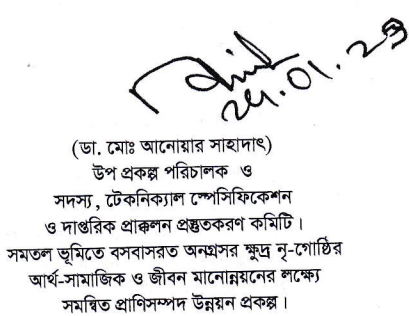 24.01.23
(ডা. মোঃ আনোয়ার সাহাদাৎ)
উপ প্রকল্প পরিচালক ও
সদস্য, টেকনিক্যাল স্পেসিফিকেশন
ও দাপ্তরিক প্রাক্কলন প্রস্তুতকরণ কমিটি।
সমতল ভূমিতে বসবাসরত অনগ্রসর ক্ষুদ্র নৃ-গোষ্ঠির
আর্থ-সামাজিক ও জীবন মানোন্নয়নের লক্ষ্যে
সমন্বিত প্রাণিসম্পদ উন্নয়ন প্রকল্প।